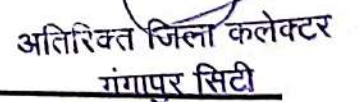 अतिरिक्त जिला कलेक्टर
गंगापुर सिटी